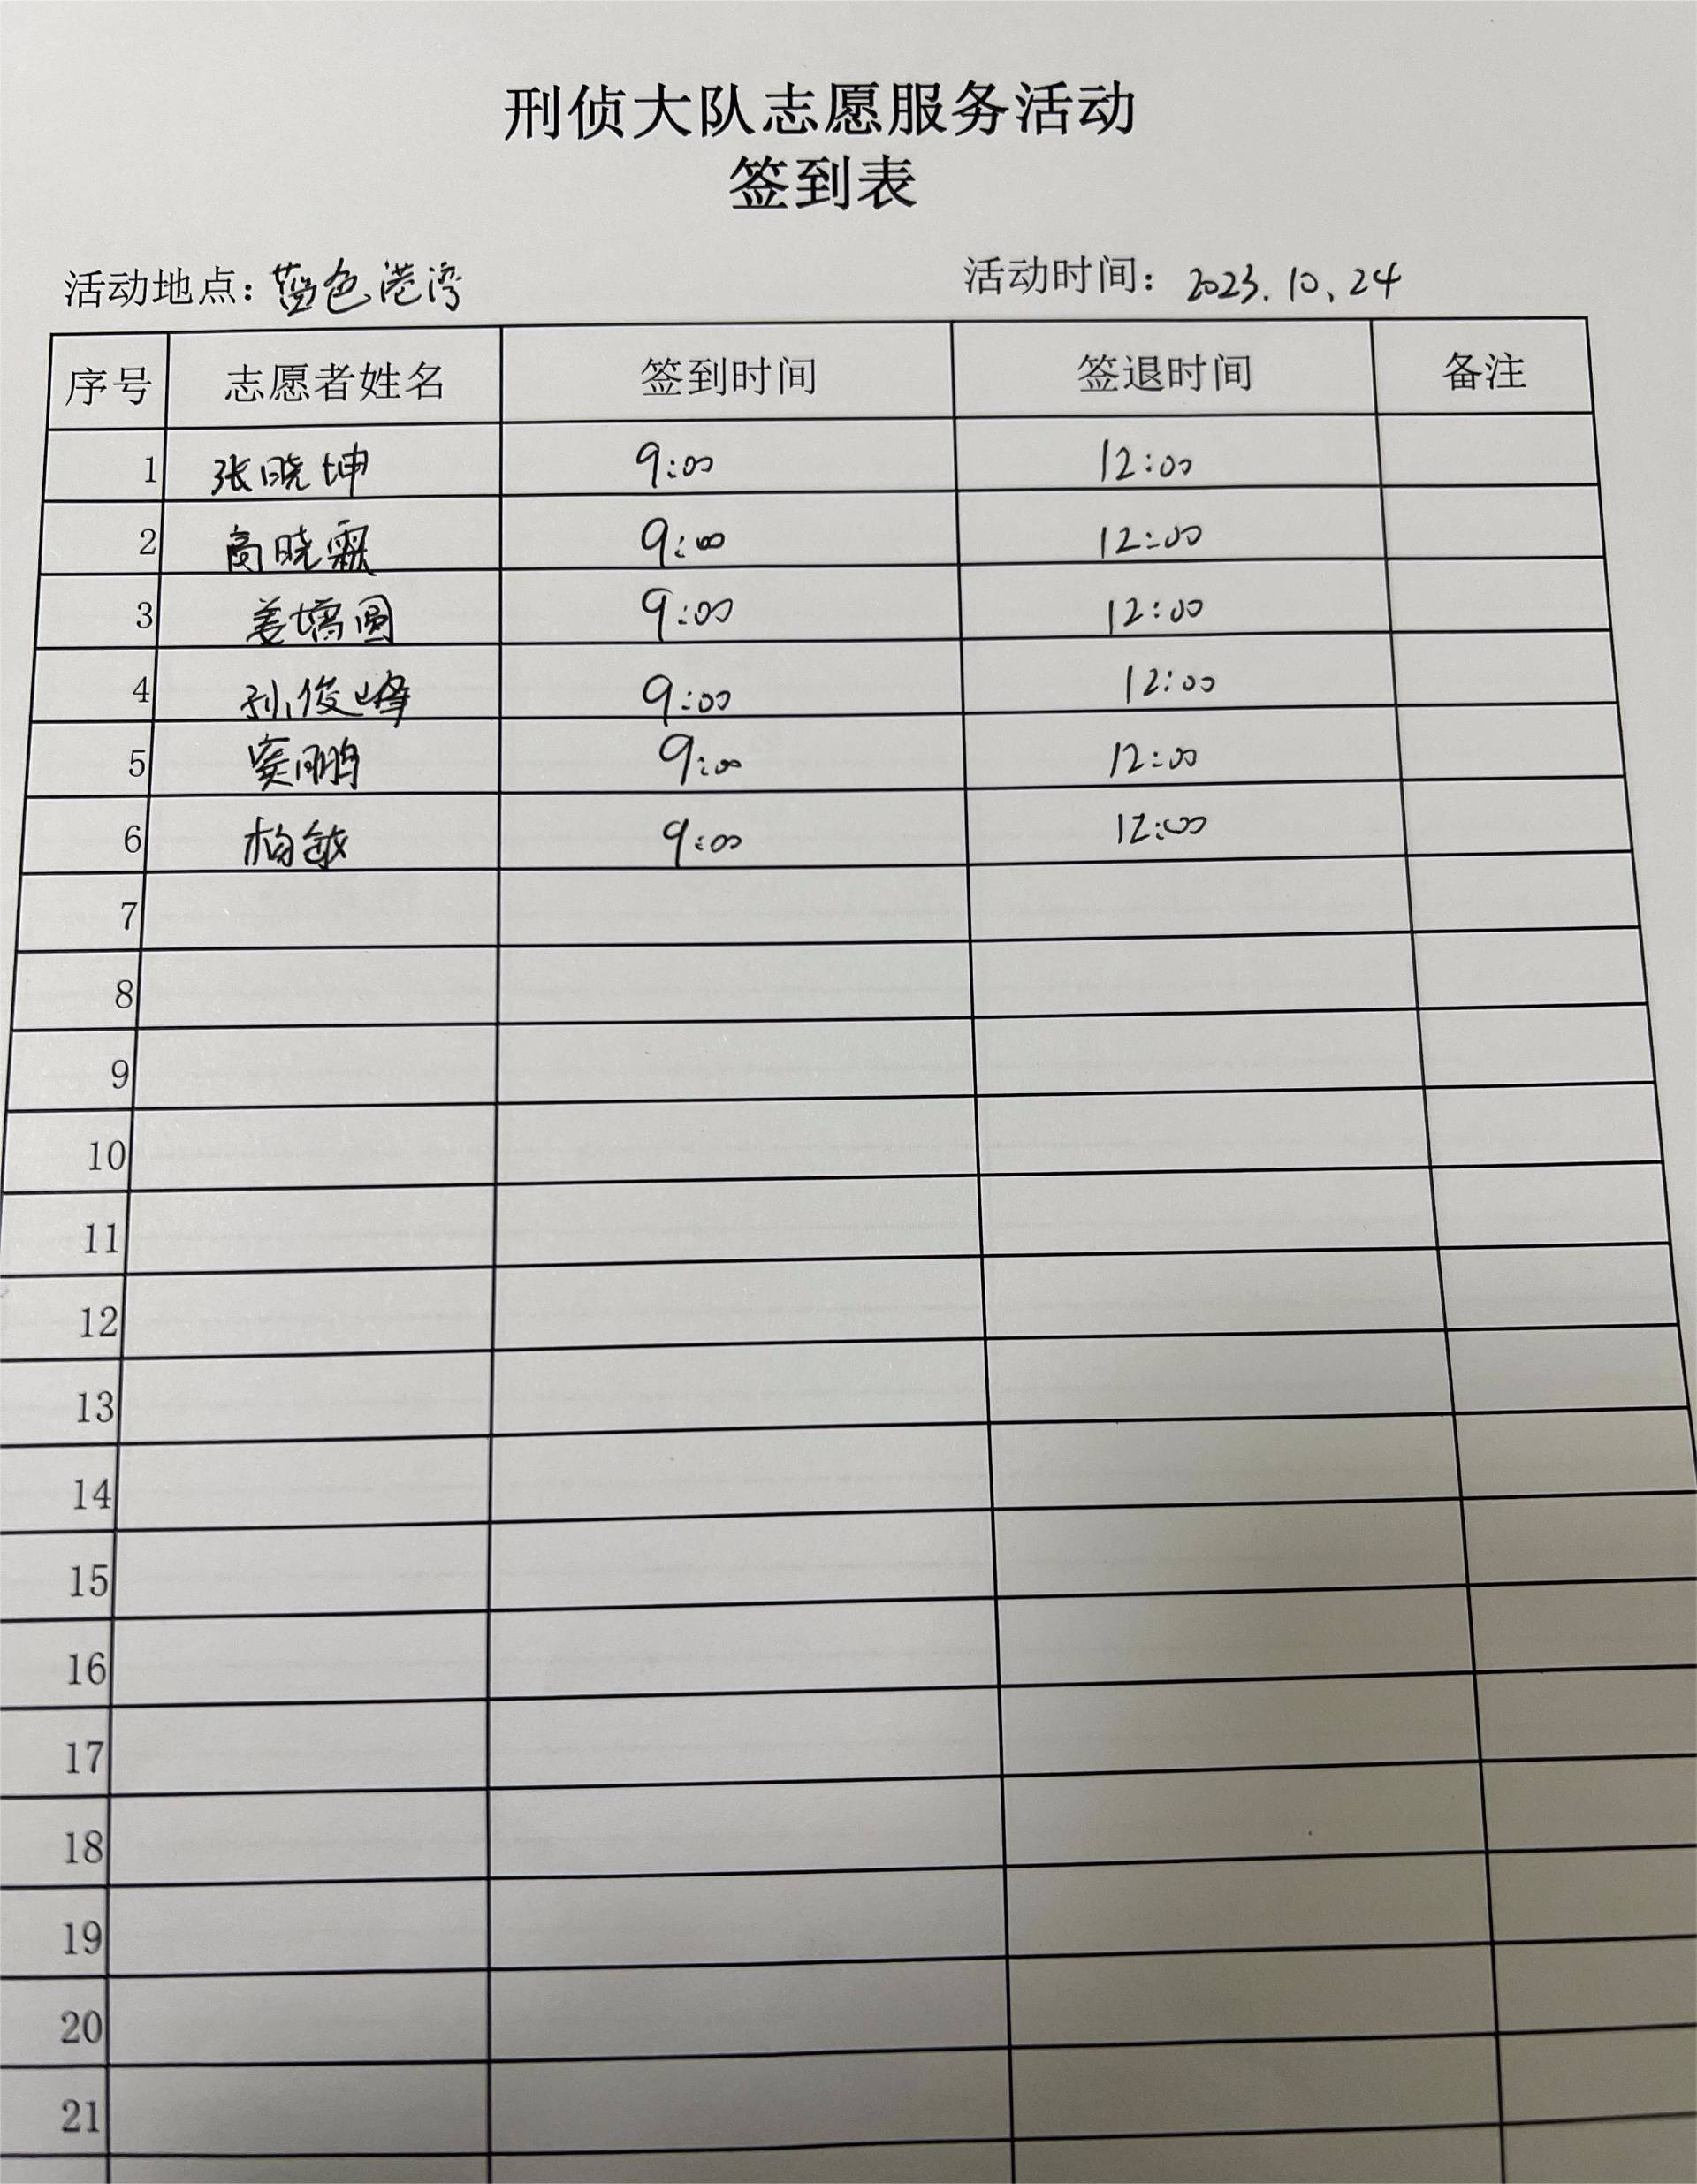 刑侦大队志愿服务活动
签到表
活动地点：蓝色港湾 活动时间：2023.10、24
序号 志愿者姓名 签到时间 签退时间 备注
1 张晓坤 9:00 12:00
2 高晓霖 9:00 12:00
3 姜 9:00 12:00
4 孙俊峰 9:00 12:00
5 窦鹏 9:00 12:00
6 柏敏 9:00 12:00
7
8
9
10
11
12
13
14
15
16
17
18
19
20
21